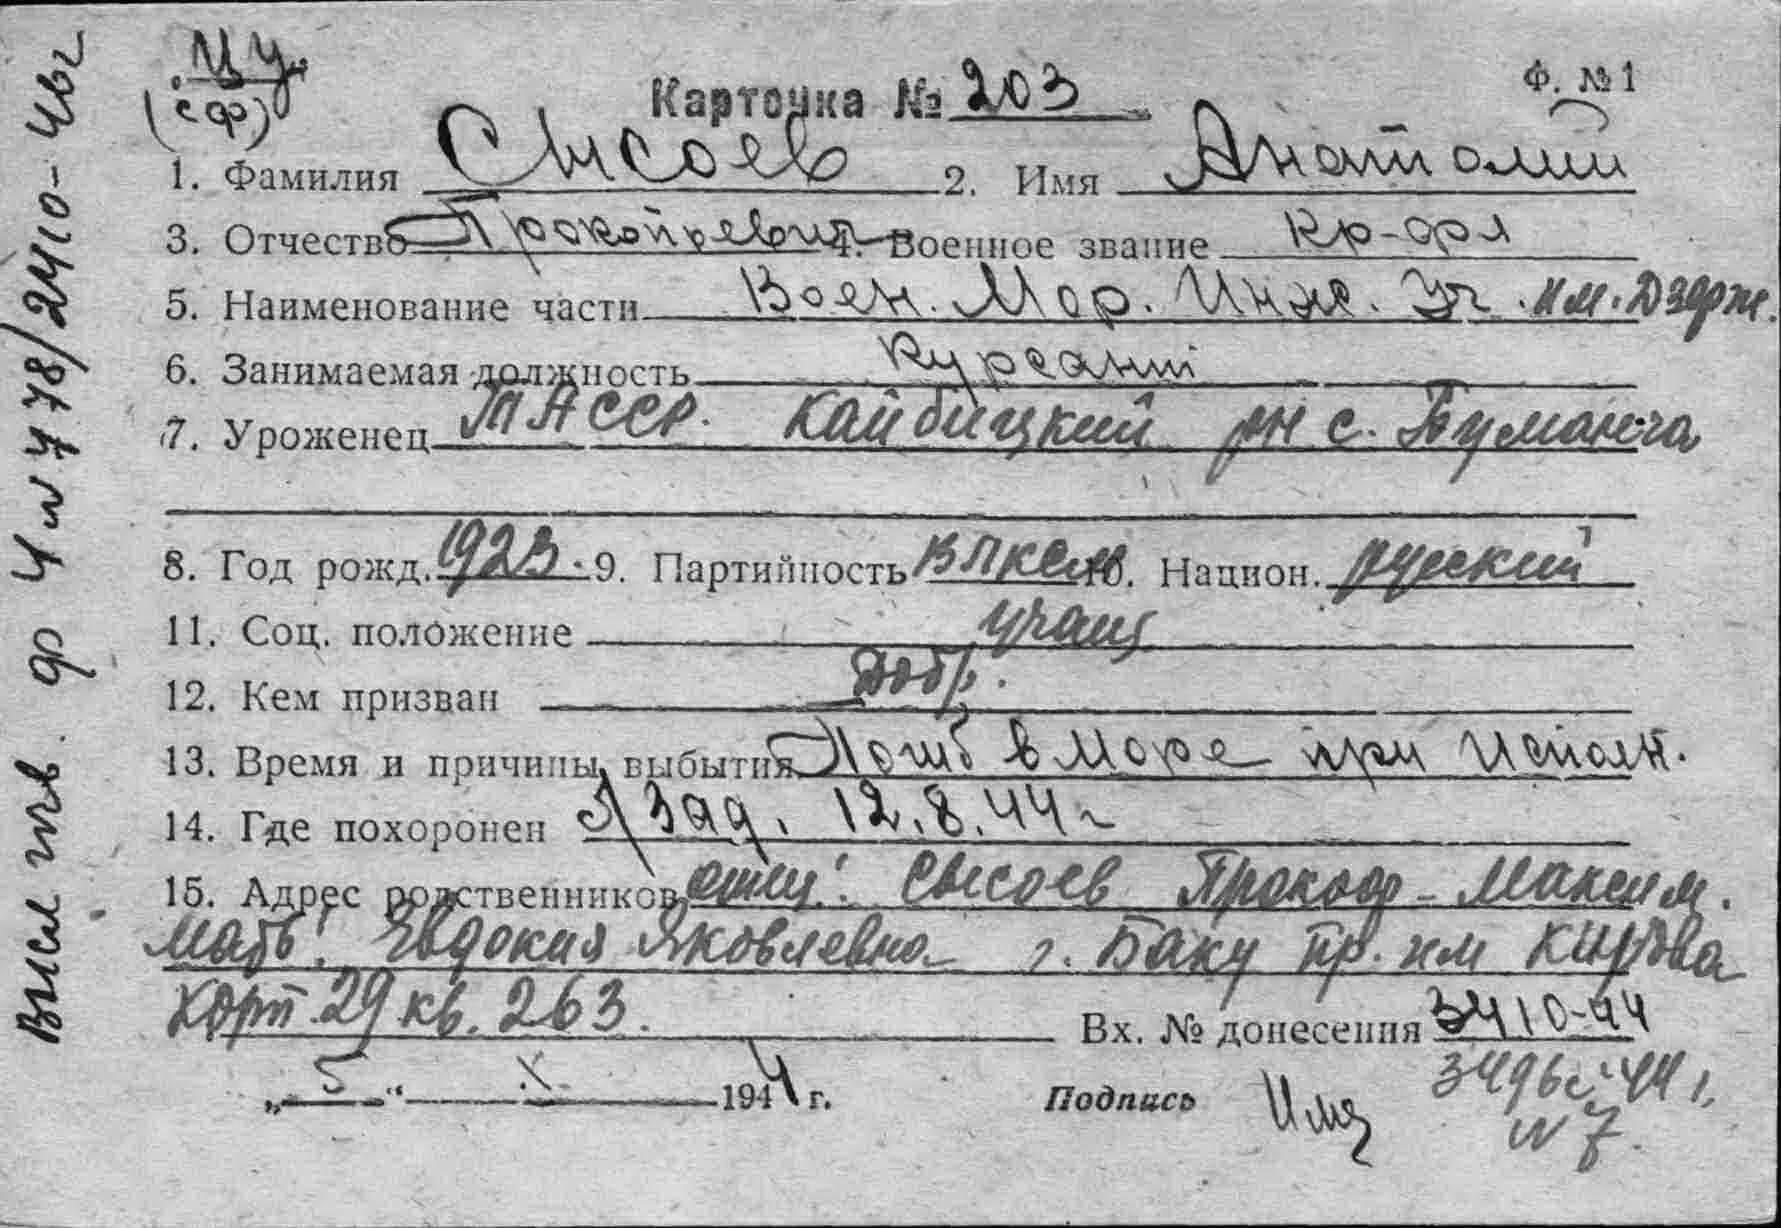 ЦУ.
(сф)
Карточка № 203
Ф. № 1
1. Фамилия Сысоев 2. Имя Анатолий
3. Отчество Прокопьевич 4. Военное звание кр-фл
5. Наименование части Воен. Мор. Инж. Уч. им. Дзерж.
6. Занимаемая должность курсант
7. Уроженец ТАССР. Кайбицкий рн с.
8. Год рожд. 1923. 9. Партийность ВЛКСМ 10. Национ. русский
11. Соц. положение учащ
12. Кем призван Добр.
13. Время и причины выбытия Погиб в море при исполн.
14. Где похоронен зад. 12.8.44 г
15. Адрес родственников отец: Сысоев Прокоф- Максим.
мать: Евдокия Яковлевна г. Баку пр. им Кирова
корп. 29 кв. 263.
Вх. № донесения 3410-44
3496с-44 г.
№ 7.
„ 5 “ X 1944 г. Подпись
Высл изв. ф 4 № 778/2410-44г